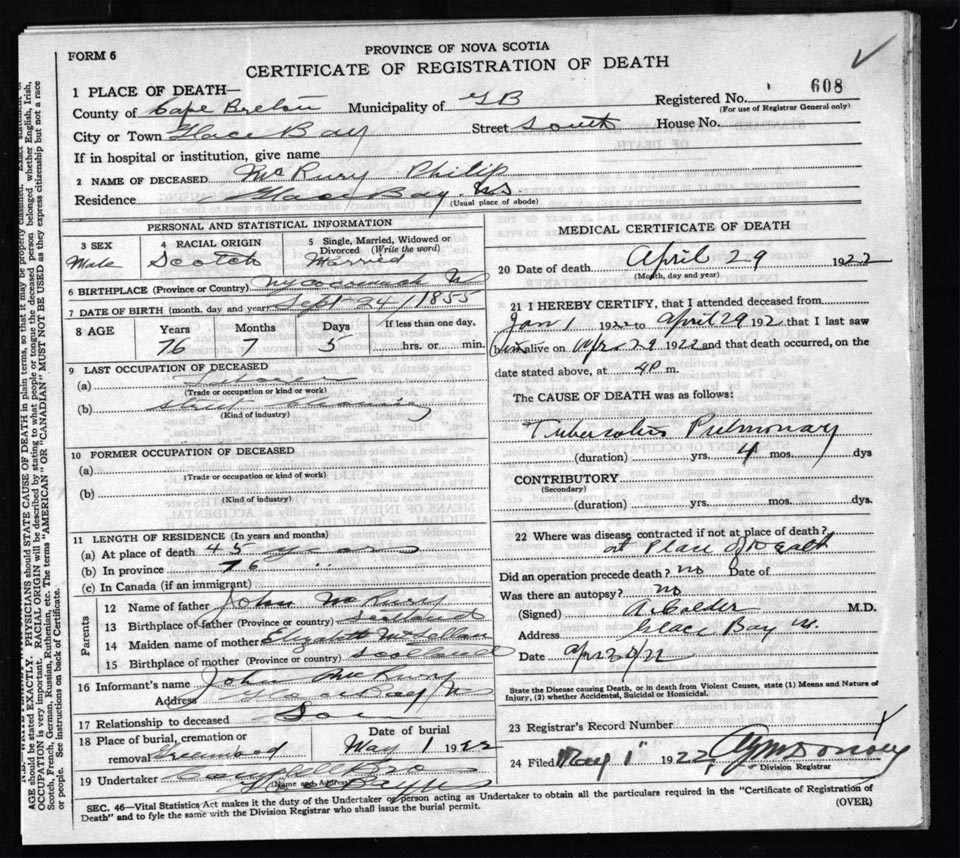 FORM 6
PROVINCE OF NOVA SCOTIA
CERTIFICATE OF REGISTRATION OF DEATH
1 PLACE OF DEATH—
County of Cape Breton Municipality of GB Registered No. 608
(For use of Registrar General only)
City or Town Glace Bay Street South House No.
If in hospital or institution, give name
2 NAME OF DECEASED McRury Philip
Residence Glace Bay N.S.
(Usual place of abode)
PERSONAL AND STATISTICAL INFORMATION
3 SEX 4 RACIAL ORIGIN 5 Single, Married, Widowed or Divorced (Write the word)
Male Scotch Married
6 BIRTHPLACE (Province or Country)
7 DATE OF BIRTH (month, day and year) Sept 24/1855
8 AGE Years Months Days If less than one day,
76 7 5 hrs. or min.
9 LAST OCCUPATION OF DECEASED
(a)
(Trade or occupation or kind or work)
(b) Street
(Kind of industry)
10 FORMER OCCUPATION OF DECEASED
(a)
(Trade or occupation or kind of work)
(b)
(Kind of industry)
11 LENGTH OF RESIDENCE (In years and months)
(a) At place of death 45 years
(b) In province 76 "
(c) In Canada (if an immigrant)
Parents
12 Name of father John McRury
13 Birthplace of father (Province or country) Scotland
14 Maiden name of mother Elizabeth McLellan
15 Birthplace of mother (Province or country) Scotland
16 Informant's name John McRury
Address Glace Bay NS
17 Relationship to deceased Son
18 Place of burial, cremation or removal Greenwood Date of burial May 1 1922
19 Undertaker Bro
(Name and Address) Bay
MEDICAL CERTIFICATE OF DEATH
20 Date of death April 29 1922
(Month, day and year)
21 I HEREBY CERTIFY, that I attended deceased from
Jan 1 1922 to April 29 192 that I last saw
him alive on Apr 29 1922 and that death occurred, on the
date stated above, at 4P m.
The CAUSE OF DEATH was as follows:
Tuberculosis Pulmonary
(duration) yrs. 4 mos. dys
CONTRIBUTORY
(Secondary)
(duration) yrs. mos. dys.
22 Where was disease contracted if not at place of death?
at Place of Death
Did an operation precede death? no Date of
Was there an autopsy? no
(Signed) A. Calder M.D.
Address Glace Bay
Date
State the Disease causing Death, or in death from Violent Causes, state (1) Means and Nature of
Injury, (2) whether Accidental, Suicidal or Homicidal.
23 Registrar's Record Number
24 Filed May 1" 1922
Division Registrar
SEC. 46—Vital Statistics Act makes it the duty of the Undertaker or person acting as Undertaker to obtain all the particulars required in the "Certificate of Registration of
Death" and to fyle the same with the Division Registrar who shall issue the burial permit. (OVER)
AGE should be stated EXACTLY. PHYSICIANS should STATE CAUSE OF DEATH in plain terms, so that it may be properly classified. Exact
OCCUPATION is very important. RACIAL ORIGIN will be described by stating to what people or tongue the deceased person belonged whether English, Irish,
Scotch, French, German, Russian, Ruthenian, etc. The terms "AMERICAN" or "CANADIAN" MUST NOT BE USED as they express citizenship but not a race
or people. See instructions on back of Certificate.